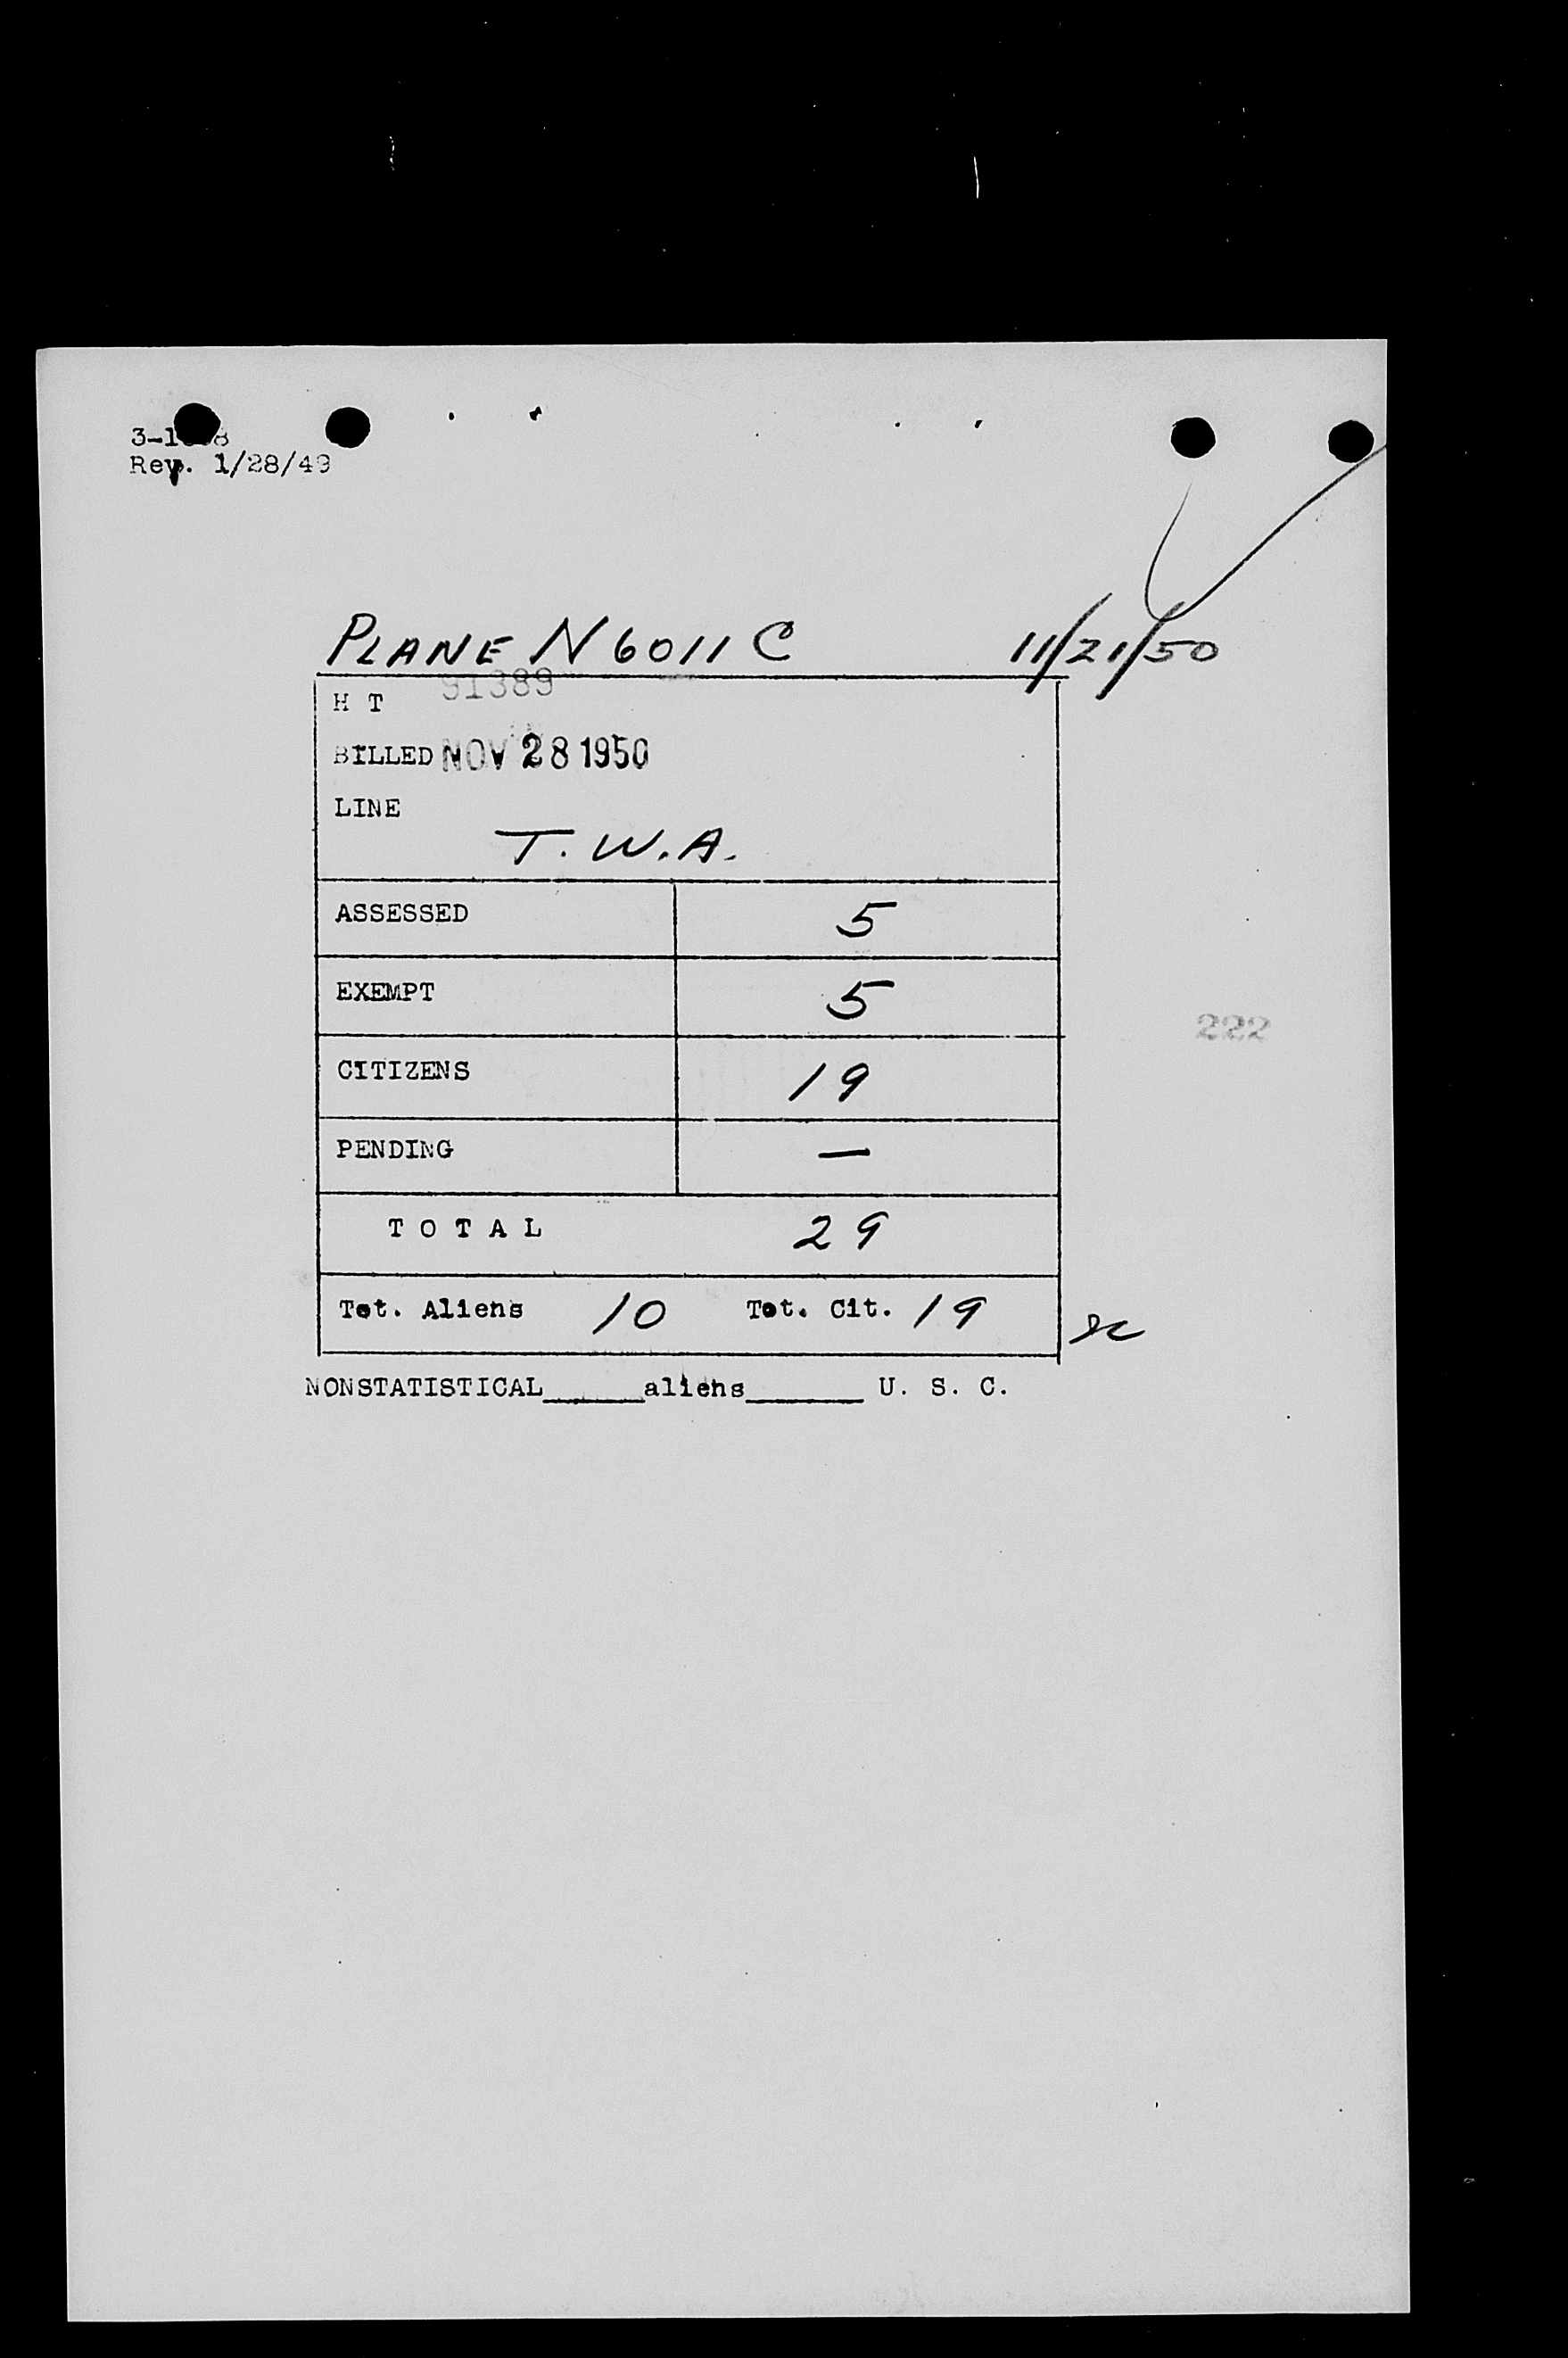 Rev. 1/28/49
PLANE N6011C 11/21/50
H T 91389
BILLED NOV 28 1950
LINE
T.W.A.
ASSESSED 5
EXEMPT 5
222
CITIZENS 19
PENDING —
TOTAL 29
Tot. Aliens 10 Tot. Cit. 19
NONSTATISTICAL______aliens_______ U. S. C.